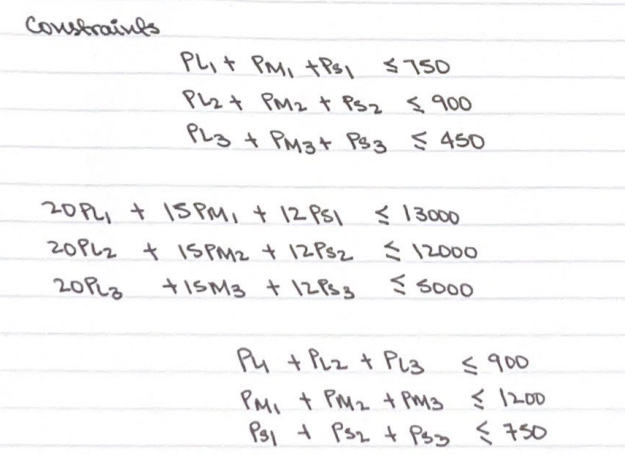 Constraints
PL₁ + PM₁ + PS₁ ≤ 750
PL₂ + PM₂ + PS₂ ≤ 900
PL₃ + PM₃ + PS₃ ≤ 450
20PL₁ + 15PM₁ + 12PS₁ ≤ 13000
20PL₂ + 15PM₂ + 12PS₂ ≤ 12000
20PL₃ + 15M₃ + 12PS₃ ≤ 5000
PL₁ + PL₂ + PL₃ ≤ 900
PM₁ + PM₂ + PM₃ ≤ 1200
PS₁ + PS₂ + PS₃ ≤ 750